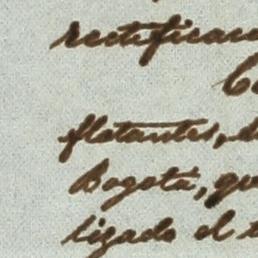 rectificac
flotantes,
Bogotá, qu
ligado el